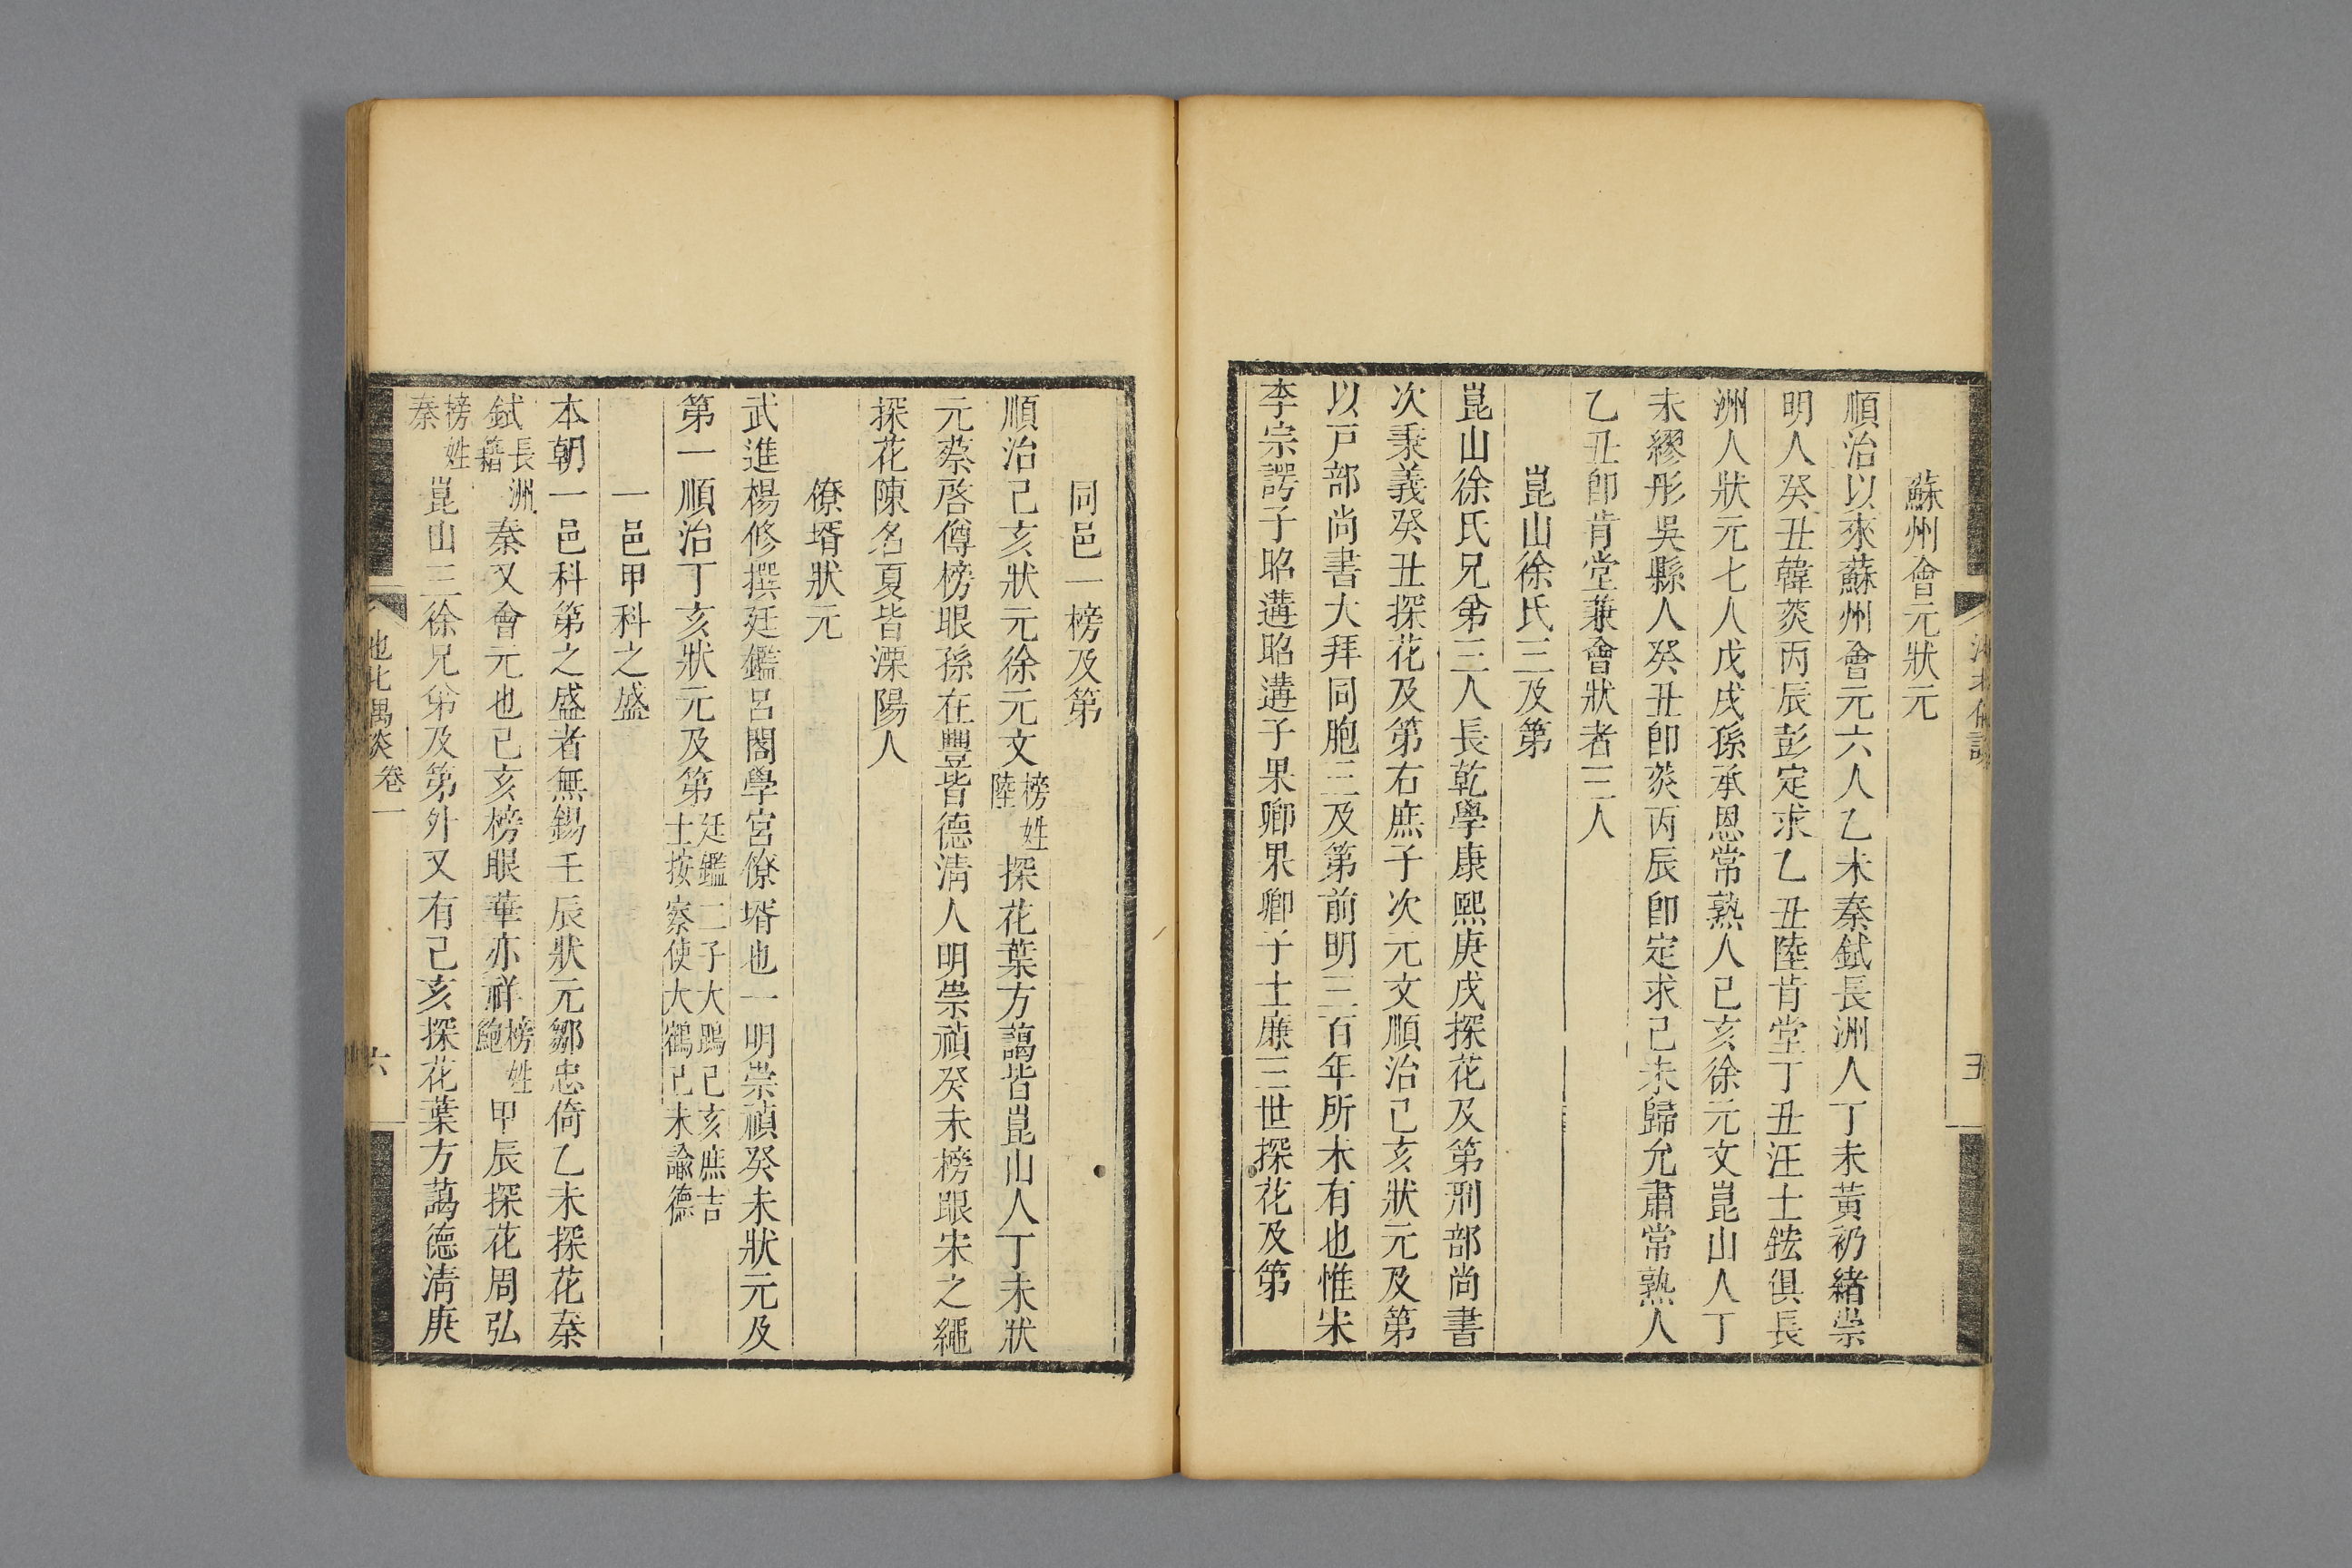 蘇州會元狀元
順治以來蘇州會元六人乙未秦鉽長洲人丁未黃礽緒崇
明人癸丑韓菼丙辰彭定求乙丑陸肯堂丁丑汪士鋐俱長
洲人狀元七人戊戌孫承恩常熟人己亥徐元文崑山人丁
未繆彤吳縣人癸丑卽菼丙辰卽定求己未歸允肅常熟人
乙丑卽肯堂兼會狀者三人
崑山徐氏三及第
崑山徐氏兄弟三人長乾學康熙庚戌探花及第刑部尚書
次秉義癸丑探花及第右庶子次元文順治己亥狀元及第
以戸部尚書大拜同胞三及第前明三百年所未有也惟宋
李宗諤子昭遘昭遘子果卿果卿子士廉三世探花及第
五
同邑一榜及第
順治己亥狀元徐元文榜姓陸探花葉方藹皆崑山人丁未狀
元蔡啓僔榜眼孫在豐皆德清人明崇禎癸未榜眼宋之繩
探花陳名夏皆溧陽人
僚壻狀元
武進楊修撰廷鑑呂閣學宮僚壻也一明崇禎癸未狀元及
第一順治丁亥狀元及第廷鑑二子大鵾己亥庶吉士按察使大鶴己未諭德
一邑甲科之盛
本朝一邑科第之盛者無錫壬辰狀元鄒忠倚乙未探花秦
鉽長洲籍秦又會元也己亥榜眼華亦祥榜姓鮑甲辰探花周弘
榜姓秦崑山三徐兄弟及第外又有己亥探花葉方藹德清庚
池北偶談卷一
六